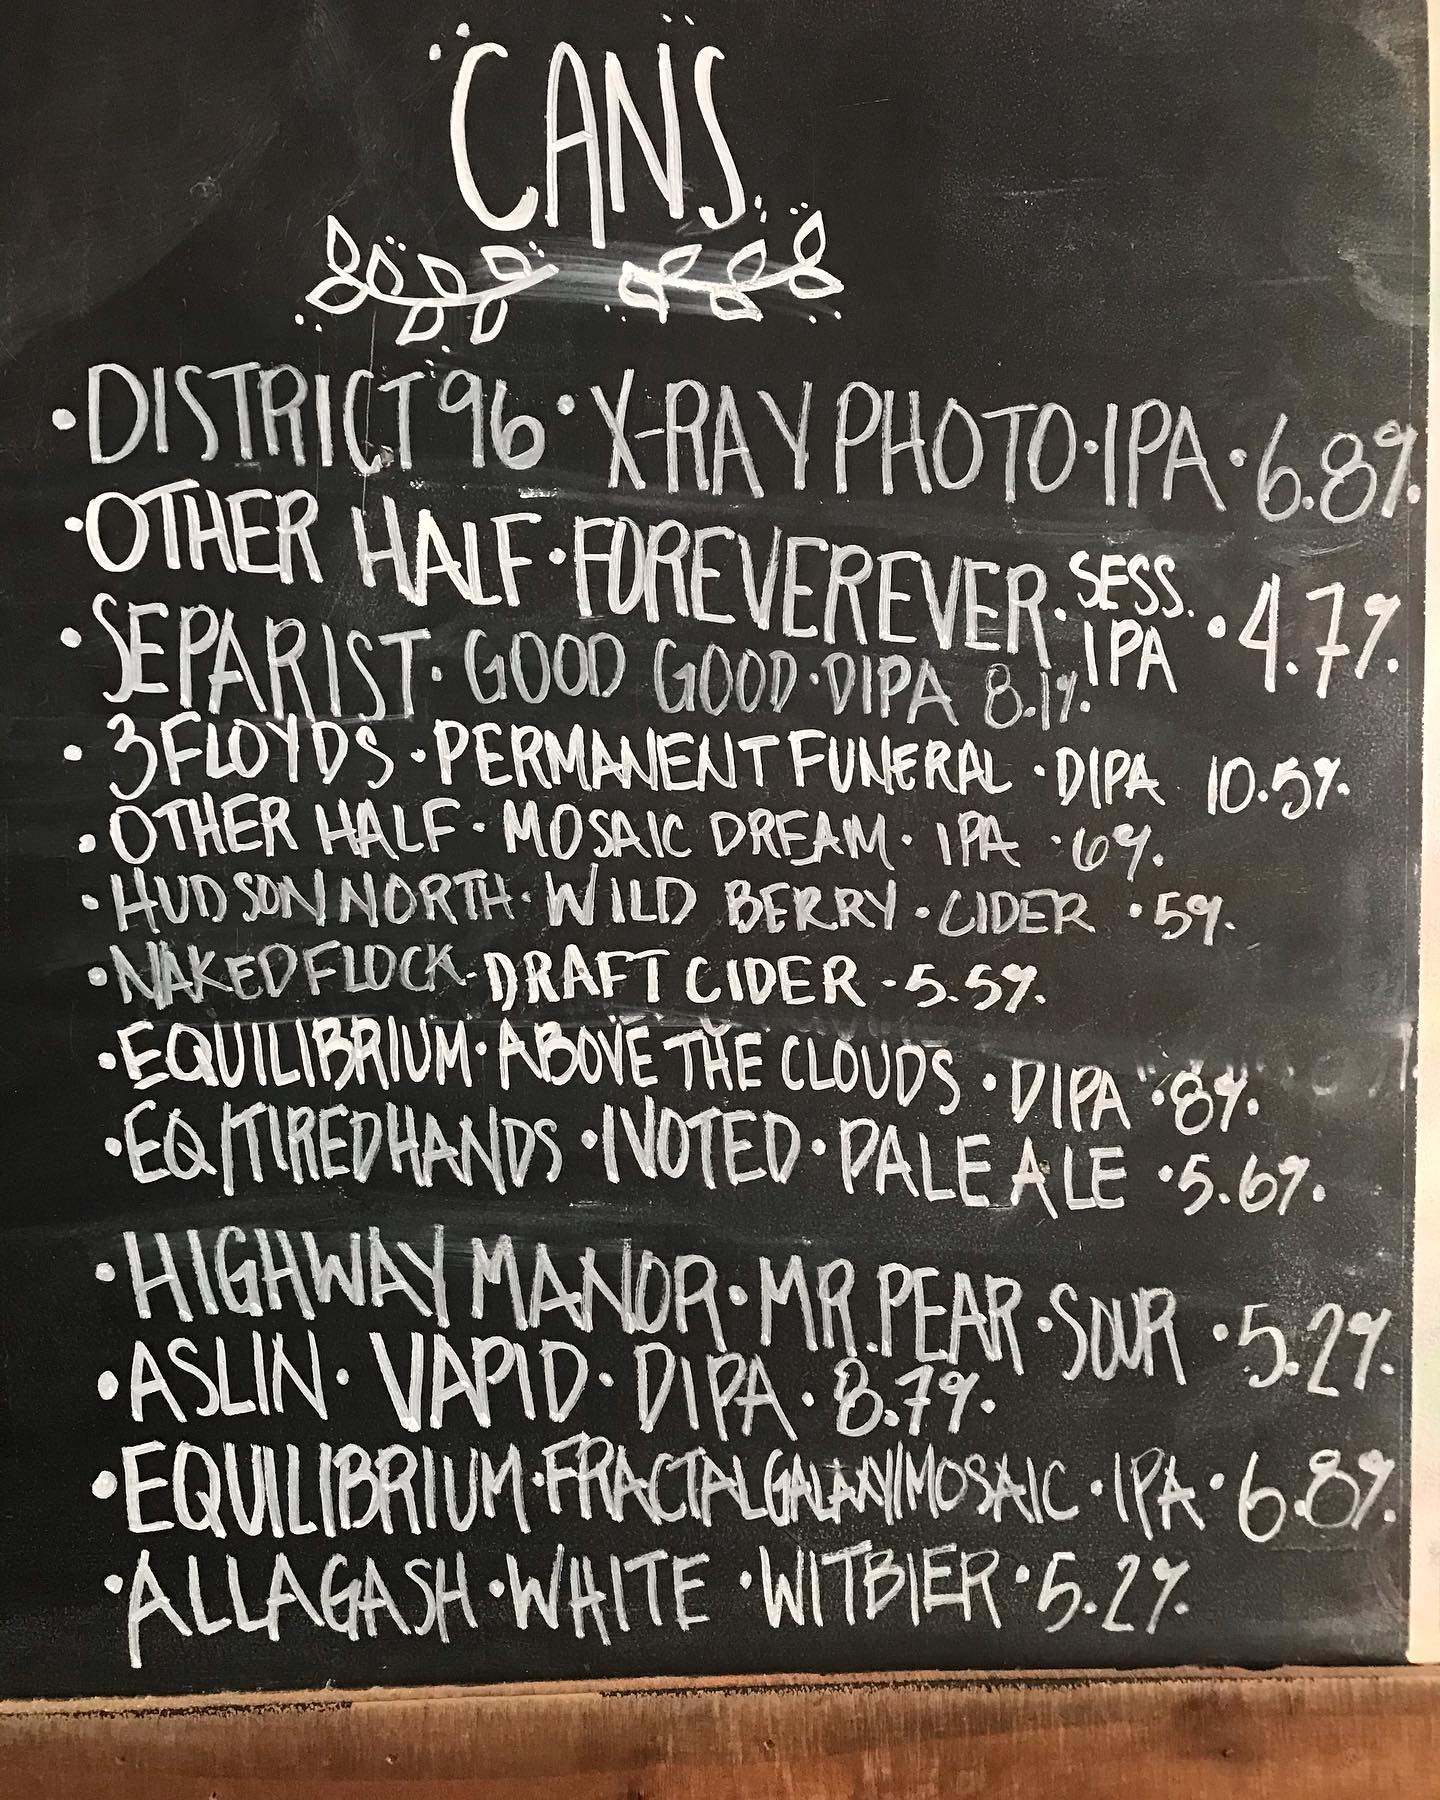 CANS
• DISTRICT 96 • X-RAY PHOTO • IPA • 6.8%
• OTHER HALF • FOREVEREVER • SESS. IPA • 4.7%
• SEPARIST • GOOD GOOD • DIPA 8.1%
• 3 FLOYDS • PERMANENT FUNERAL • DIPA 10.5%
• OTHER HALF • MOSAIC DREAM • IPA • 6%
• HUDSON NORTH • WILD BERRY • CIDER • 5%
• NAKED FLOCK • DRAFT CIDER • 5.5%
• EQUILIBRIUM • ABOVE THE CLOUDS • DIPA • 8%
• EQ/TIRED HANDS • IVOTED • PALE ALE • 5.6%
• HIGHWAY MANOR • MR. PEAR • SOUR • 5.2%
• ASLIN • VAPID • DIPA • 8.7%
• EQUILIBRIUM • FRACTAL GALAXY/MOSAIC • IPA • 6.8%
• ALLAGASH • WHITE • WITBIER • 5.2%